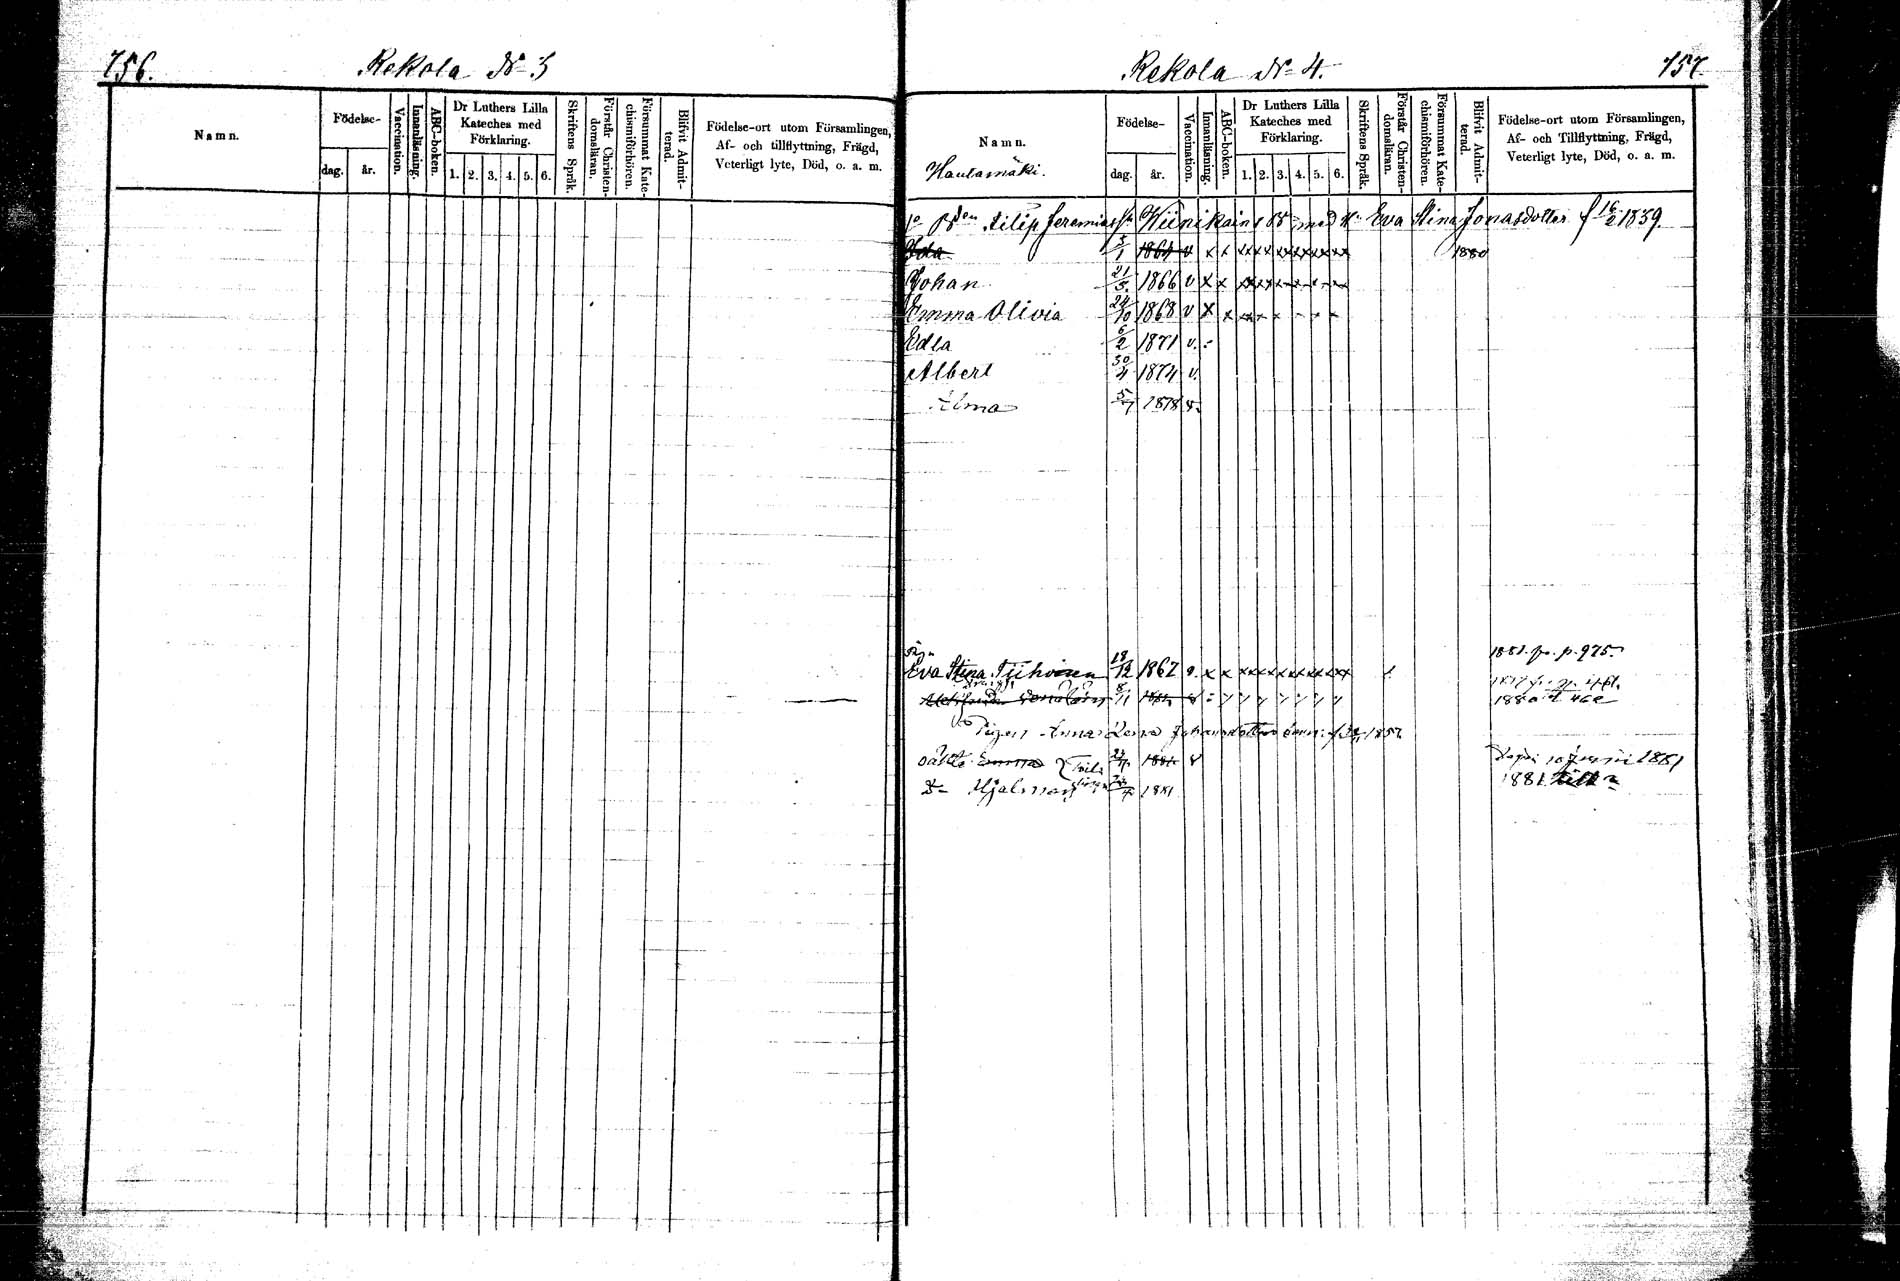 756.
Rekola No 3
Namn.
Födelse-
dag. år.
Vaccination.
Innanläsning.
ABC-boken.
Dr Luthers Lilla
Kateches med
Förklaring.
1. 2. 3. 4. 5. 6.
Skriftens Språk.
Förstår Christen-
domsläran.
Försummat Kate-
chismiförhören.
Blifvit Admit-
terad.
Födelse-ort utom Församlingen,
Af- och tillflyttning, Frägd,
Veterligt lyte, Död, o. a. m.
Rekola No 4.
757.
Namn.
Hautamäki.
Födelse-
dag. år.
Vaccination.
Innanläsning.
ABC-boken.
Dr Luthers Lilla
Kateches med
Förklaring.
1. 2. 3. 4. 5. 6.
Skriftens Språk.
Förstår Christen-
domsläran.
Försummat Kate-
chismiförhören.
Blifvit Admit-
terad.
Födelse-ort utom Församlingen,
Af- och Tillflyttning, Frägd,
Veterligt lyte, Död, o. a. m.
Filip Jeremias Wiinikain med Eva Stina Jonasdotter f 1839.
Ida 5/1 1864 v x x xx xx xx xx xx xx 1880
Johan 21/5 1866 v x x
Emma Olivia 24/10 1868 v x x
Edla 6/2 1871 v.
Albert 30/4 1874 v.
Alma 5/7 1878 v.
1881 fr. p. 975.
Eva Stina Tiihonen 18/12 1862 x x xx xx xx xx xx xx
1880
Anna Lena Johansdotter 1857
Emma 1881 v 10 juni 1881
Hjalmar 1881 1881